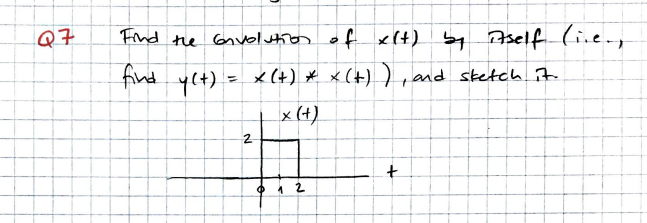 Q7 Find the Convolution of x(t) by itself (i.e.,
find y(t) = x(t) * x(t) ), and sketch it.
x(t)
2
t
0 1 2